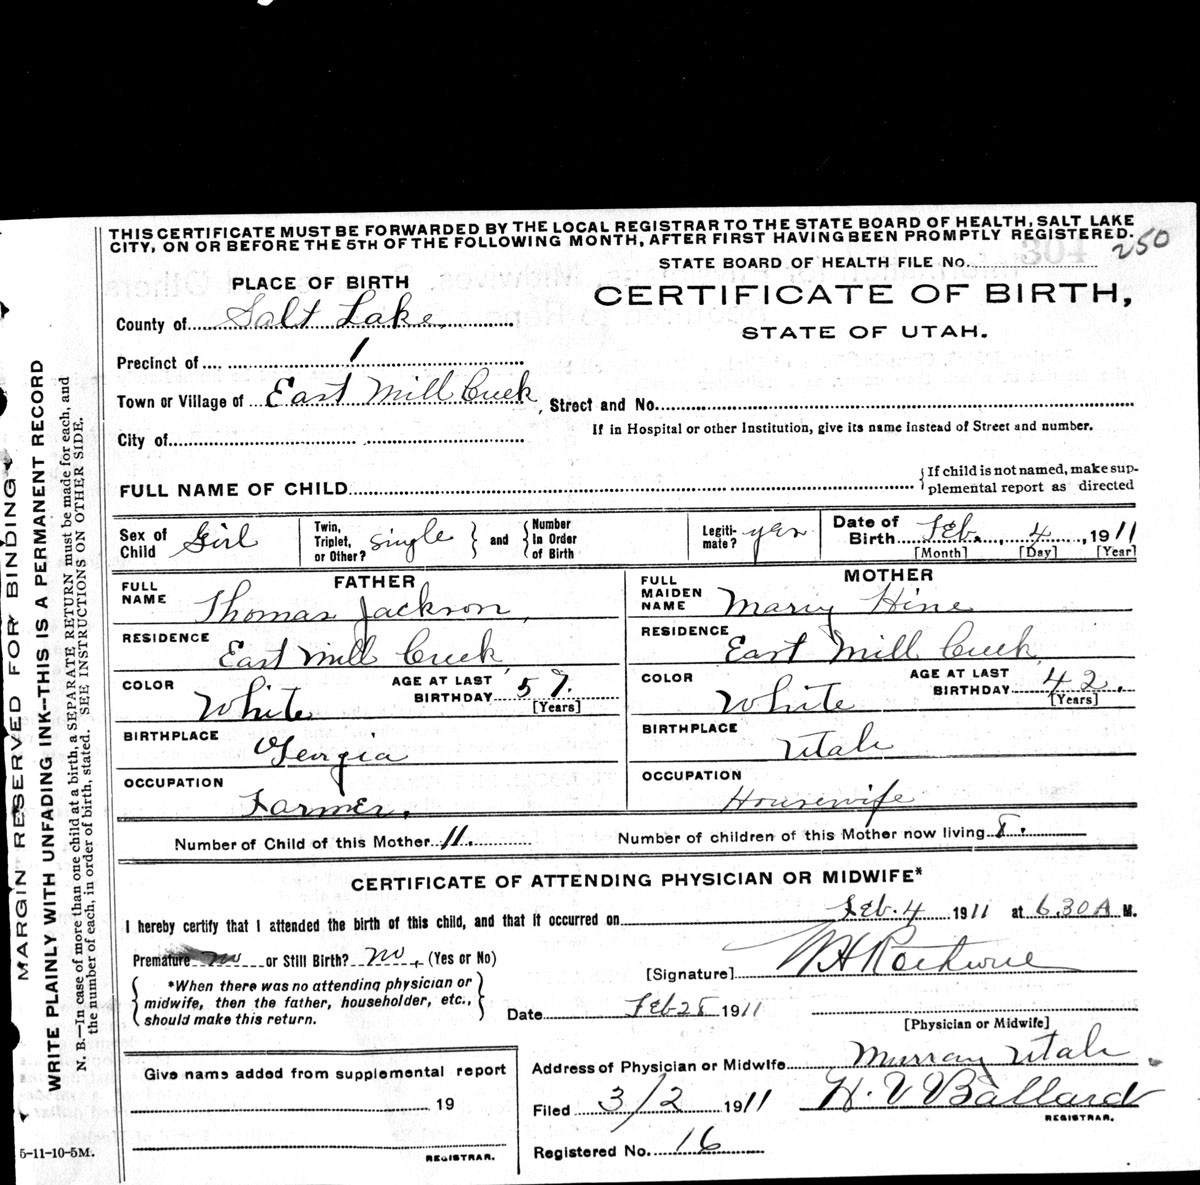 THIS CERTIFICATE MUST BE FORWARDED BY THE LOCAL REGISTRAR TO THE STATE BOARD OF HEALTH, SALT LAKE
CITY, ON OR BEFORE THE 5TH OF THE FOLLOWING MONTH, AFTER FIRST HAVING BEEN PROMPTLY REGISTERED.
250
STATE BOARD OF HEALTH FILE No. 304
PLACE OF BIRTH
CERTIFICATE OF BIRTH,
STATE OF UTAH.
County of Salt Lake
Precinct of 1
Town or Village of East Mill Creek, Street and No.
If in Hospital or other Institution, give its name instead of Street and number.
City of
FULL NAME OF CHILD
If child is not named, make sup-
plemental report as directed
Sex of Child Girl
Twin, Triplet, or Other? Single and Number In Order of Birth
Legiti-mate? yes
Date of Birth Feb. 4, 1911
[Month] [Day] [Year]
FATHER
FULL NAME Thomas Jackson
RESIDENCE East Mill Creek
COLOR White AGE AT LAST BIRTHDAY 57. [Years]
BIRTHPLACE Georgia
OCCUPATION Farmer.
MOTHER
FULL MAIDEN NAME Mary Hine
RESIDENCE East Mill Creek
COLOR White AGE AT LAST BIRTHDAY 42. [Years]
BIRTHPLACE Utah
OCCUPATION Housewife
Number of Child of this Mother 11. Number of children of this Mother now living 8.
CERTIFICATE OF ATTENDING PHYSICIAN OR MIDWIFE*
I hereby certify that I attended the birth of this child, and that it occurred on Feb. 4 1911 at 6.30 A M.
Premature no or Still Birth? no, (Yes or No)
*When there was no attending physician or
midwife, then the father, householder, etc.,
should make this return.
[Signature]
Date Feb 28 1911
[Physician or Midwife]
Give name added from supplemental report
19
REGISTRAR.
Address of Physician or Midwife Murray Utah
Filed 3/2 1911 H. V. Ballard
REGISTRAR.
Registered No. 16
5-11-10-5M.
MARGIN RESERVED FOR BINDING
WRITE PLAINLY WITH UNFADING INK—THIS IS A PERMANENT RECORD
N. B.—In case of more than one child at a birth, a SEPARATE RETURN must be made for each, and
the number of each, in order of birth, stated. SEE INSTRUCTIONS ON OTHER SIDE.